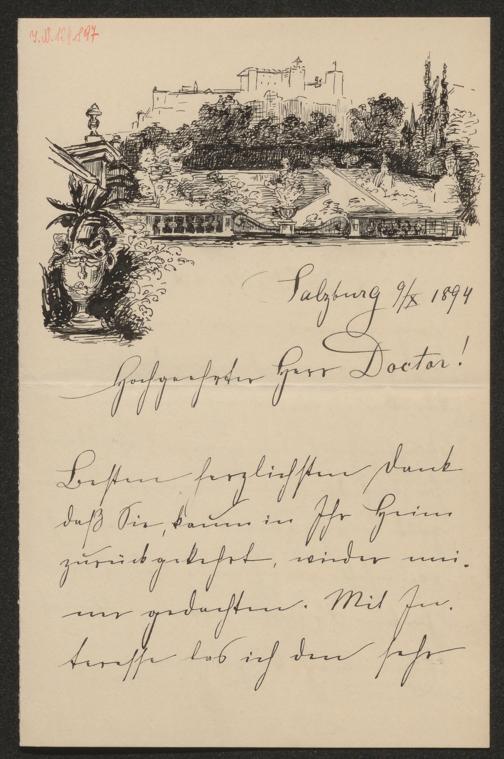 Salzburg 9/X 1894
Hochgeehrter Herr Doctor!
Besten herzlichsten Dank
daß Sie, kaum in Ihr Heim
zurückgekehrt, wieder mei-
ner gedachten. Mit In-
teresse las ich den sehr